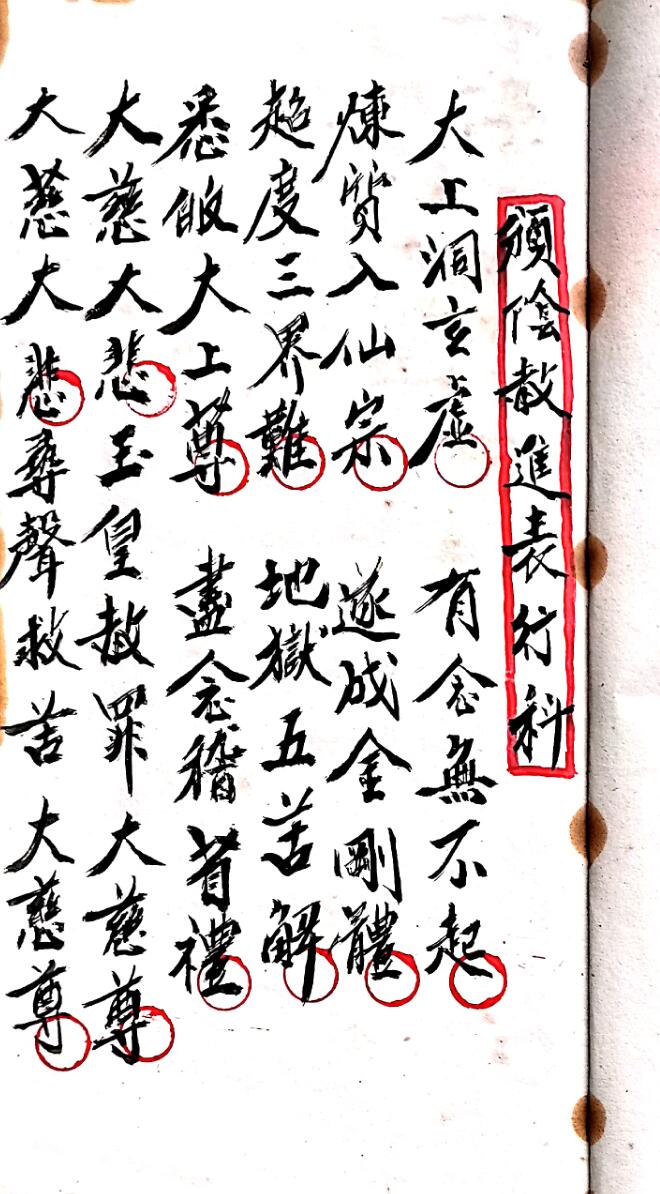 頒陰赦進表行科
大上洞玄虛 有念無不起
煉質入仙宗 遂成金剛體
超度三界難 地獄五苦解
悉皈大上尊 盡念稽首禮
大慈大悲玉皇赦罪大慈尊
大慈大悲尋聲救苦大慈尊